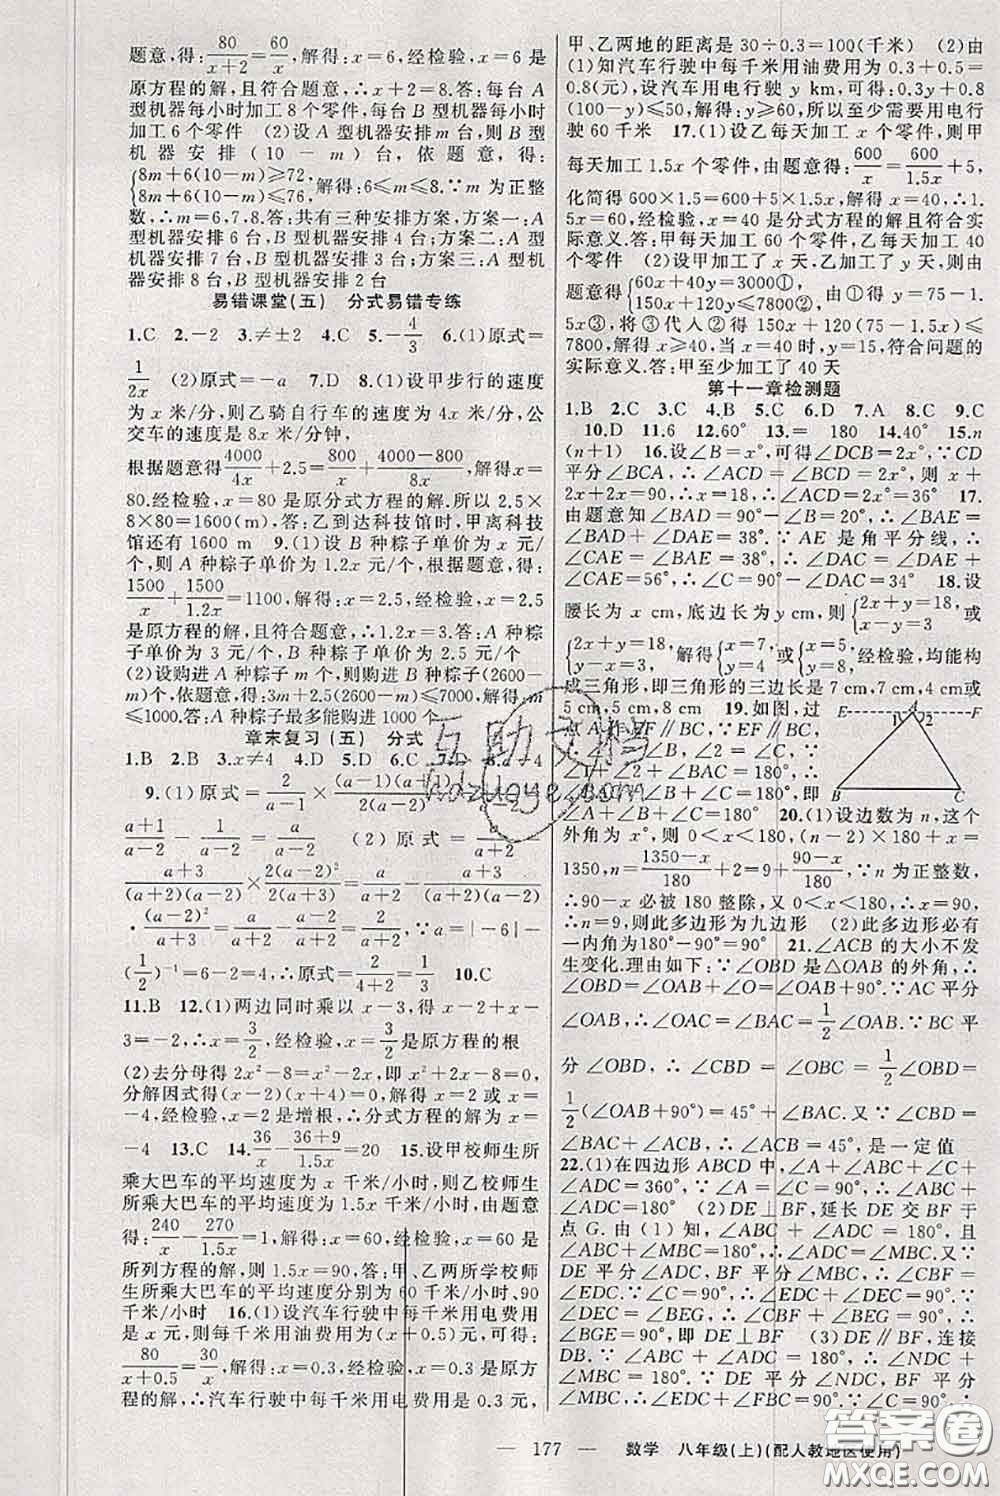 题意,得:80/(x+2)=60/x,解得:x=6,经检验,x=6 是
原方程的解,且符合题意,∴x+2=8.答:每台 A 型
机器每小时加工 8 个零件,每台 B 型机器每小时
加工 6 个零件 (2)设 A 型机器安排 m 台,则 B 型
机器安排(10-m)台,依题意,得:
{8m+6(10-m)≥72,
8m+6(10-m)≤76, 解得:6≤m≤8.∵m 为正整
数,∴m=6,7,8.答:共有三种安排方案,方案一:A型
机器安排 6 台,B 型机器安排 4 台;方案二:A型
机器安排 7 台,B 型机器安排 3 台;方案三:A型
机器安排 8 台,B 型机器安排 2 台
易错课堂(五) 分式易错专练
1.C 2.-2 3.≠±2 4.C 5.-4/3 6.(1)原式=
1/2x (2)原式=-a 7.D 8.(1)设甲步行的速度
为 x 米/分,则乙骑自行车的速度为 4x 米/分,公
交车的速度是 8x 米/分钟,
根据题意得4000/4x+2.5=(4000-800)/8x,解得x=
80.经检验,x=80 是原分式方程的解.所以 2.5×
8×80=1600(m),答:乙到达科技馆时,甲离科技
馆还有 1600 m 9.(1)设 B 种粽子单价为 x 元/
个,则 A 种粽子单价为 1.2x 元/个,根据题意,得:
1500/x+1500/1.2x=1100,解得:x=2.5,经检验,x=2.5
是原方程的解,且符合题意,∴1.2x=3.答:A 种粽
子单价为 3 元/个,B 种粽子单价为 2.5 元/个
(2)设购进 A 种粽子 m 个,则购进 B 种粽子(2600-
m)个,依题意,得:3m+2.5(2600-m)≤7000,解得:m
≤1000.答:A 种粽子最多能购进 1000 个
章末复习(五) 分式
1.B 2.B 3.x≠4 4.D 5.D 6.C
9.(1)原式=
(a+1)/(a-2)-1/(a-2)=a/(a-2) (2)原式=
(a+3)/((a+2)(a-2))×2(a-2)²/2(a+3)=a/(a+2)-(a+3)/((a+2)(a-2))
·(a-2)²/(a+3)=a/(a+2)-(a-2)/(a+2)=2/(a+2).∵a=|-6|-
(1/2)⁻¹=6-2=4,∴原式=2/(4+2)=1/3 10.C
11.B 12.(1)两边同时乘以 x-3,得 x-2+x-
3=-2,解得:x=3/2,经检验,x=3/2是原方程的根
(2)去分母得 2x²-8=x²-2x,即 x²+2x-8=0,
分解因式得(x-2)(x+4)=0,解得 x=2 或 x=
-4,经检验,x=2 是增根,∴分式方程的解为 x=
-4 13.C 14.36/x-(36+9)/1.5x=20 15.设甲校师生所
乘大巴车的平均速度为 x 千米/小时,则乙校师生
所乘大巴车的平均速度为 1.5x 千米/小时,由题意
得:240/x-270/1.5x=1,解得:x=60,经检验,x=60 是
所列方程的解,则 1.5x=90,答:甲、乙两所学校师
生所乘大巴车的平均速度分别为 60 千米/小时,90
千米/小时 16.(1)设汽车行驶中每千米用电费用
是 x 元,则每千米用油费用为(x+0.5)元,可得:
80/(x+0.5)=30/x,解得:x=0.3,经检验,x=0.3 是原方
程的解,∴汽车行驶中每千米用电费用是 0.3 元,
甲、乙两地的距离是 30÷0.3=100(千米) (2)由
(1)知汽车行驶中每千米用油费用为 0.3+0.5=
0.8(元),设汽车用电行驶 y km,可得:0.3y+0.8
(100-y)≤50,解得:y≥60,所以至少需要用电行
驶 60 千米 17.(1)设乙每天加工 x 个零件,则甲
每天加工 1.5x 个零件,由题意得:600/x=600/1.5x+5,
化简得 600×1.5=600+5×1.5x,解得 x=40,∴1.
5x=60,经检验,x=40 是分式方程的解且符合实
际意义.答:甲每天加工 60 个零件,乙每天加工 40
个零件 (2)设甲加工了 x 天,乙加工了 y 天,则由
题意得{60x+40y=3000①,
150x+120y≤7800②, 由①得 y=75-1.
5x③,将③代入②得 150x+120(75-1.5x)≤
7800,解得 x≥40,当 x=40 时,y=15,符合问题的
实际意义.答:甲至少加工了 40 天
第十一章检测题
1.B 2.C 3.C 4.B 5.C 6.D 7.A 8.C 9.C
10.D 11.6 12.60° 13.= 180 14.40° 15.n
(n+1) 16.设∠B=x°,可得∠DCB=2x°,∵CD
平分∠BCA,∴∠ACD=∠BCD=2x°,则 x+
2x+2x=90,∴x=18,∴∠A=2x°=36° 17.
由题意知∠BAD=90°-∠B=20°,∴∠BAE=
∠BAD+∠DAE=38°.∵AE 是角平分线,∴
∠CAE=∠BAE=38°,∴∠DAC=∠DAE+
∠CAE=56°,∴∠C=90°-∠DAC=34° 18.设
腰长为 x cm,底边长为 y cm,则{2x+y=18,
x-y=3 或
{2x+y=18,
y-x=3, 解得{x=7,
y=4 或{x=5,
y=8, 经检验,均能构
成三角形,即三角形的三边长是 7 cm,7 cm,4 cm或
5 cm,5 cm,8 cm 19.如图,过
点A作EF∥BC,∵EF∥BC,
∴∠1=∠B,∠2=∠C.∵∠1
+∠2+∠BAC=180°,∴∠BAC
+∠B+∠C=180°,即
∠A+∠B+∠C=180° 20.(1)设边数为 n,这个
外角为 x°,则 0<x<180,(n-2)×180+x=
1350,n=(1350-x)/180+2=9+(90-x)/180,∵n 为正整数,
∴90-x 必被 180 整除,又 0<x<180,∴x=90,
∴n=9,则此多边形为九边形 (2)此多边形必有
一内角为180°-90°=90° 21.∠ACB 的大小不发
生变化.理由如下:∵∠OBD 是△OAB 的外角,∴
∠OBD=∠OAB+∠O=∠OAB+90°.∵AC 平分
∠OAB,∴∠OAC=∠BAC=1/2∠OAB.∵BC 平
分∠OBD,∴∠CBD=∠OBC=1/2∠OBD=
1/2(∠OAB+90°)=45°+∠BAC.又∵∠CBD=
∠BAC+∠ACB,∴∠ACB=45°,是一定值
22.(1)在四边形 ABCD 中,∵∠A+∠ABC+∠C+
∠ADC=360°,∵∠A=∠C=90°,∴∠ABC+
∠ADC=180° (2)DE⊥BF,延长 DE 交 BF 于
点 G.由(1)知,∠ABC+∠ADC=180°,且
∠ABC+∠MBC=180°,∴∠ADC=∠MBC.又
∵DE 平分∠ADC,BF 平分∠MBC,∴∠CBF
=∠EDC.∵∠C=90°,∴∠DEC+∠EDC=90°.∵
∠DEC=∠BEG,∴∠CBF+∠BEG=90°,∴
∠BGE=90°,即 DE⊥BF (3)DE∥BF,连接
DB.∵∠ABC+∠ADC=180°,∴∠NDC+
∠MBC=180°.∵DE 平分∠NDC,BF 平分
∠MBC,∴∠EDC+∠FBC=90°.∵∠C=90°,∴
— 177 — 数学 八年级(上)(配人教地区使用)
A
1 2
E F
B C
互助文档
hdzuoye.com
答案圈
MXQE.COM